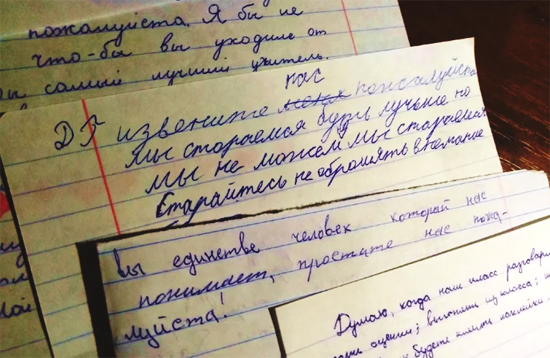 пожалуйста. Я бы не
что-бы вы уходиле от
самый лучший учитель.
нас
Д Г извените меня пожалуйста
мы стараемся будь лучьше но
мы не можем мы стараемся
Старайтесь не оброшять внемание
Вы единстве человек который нас
понимает, простите нас пожа-
луйста!
Думаю, когда наш класс разговари
оценки; выгонять из класса;
будете клеить наклейки